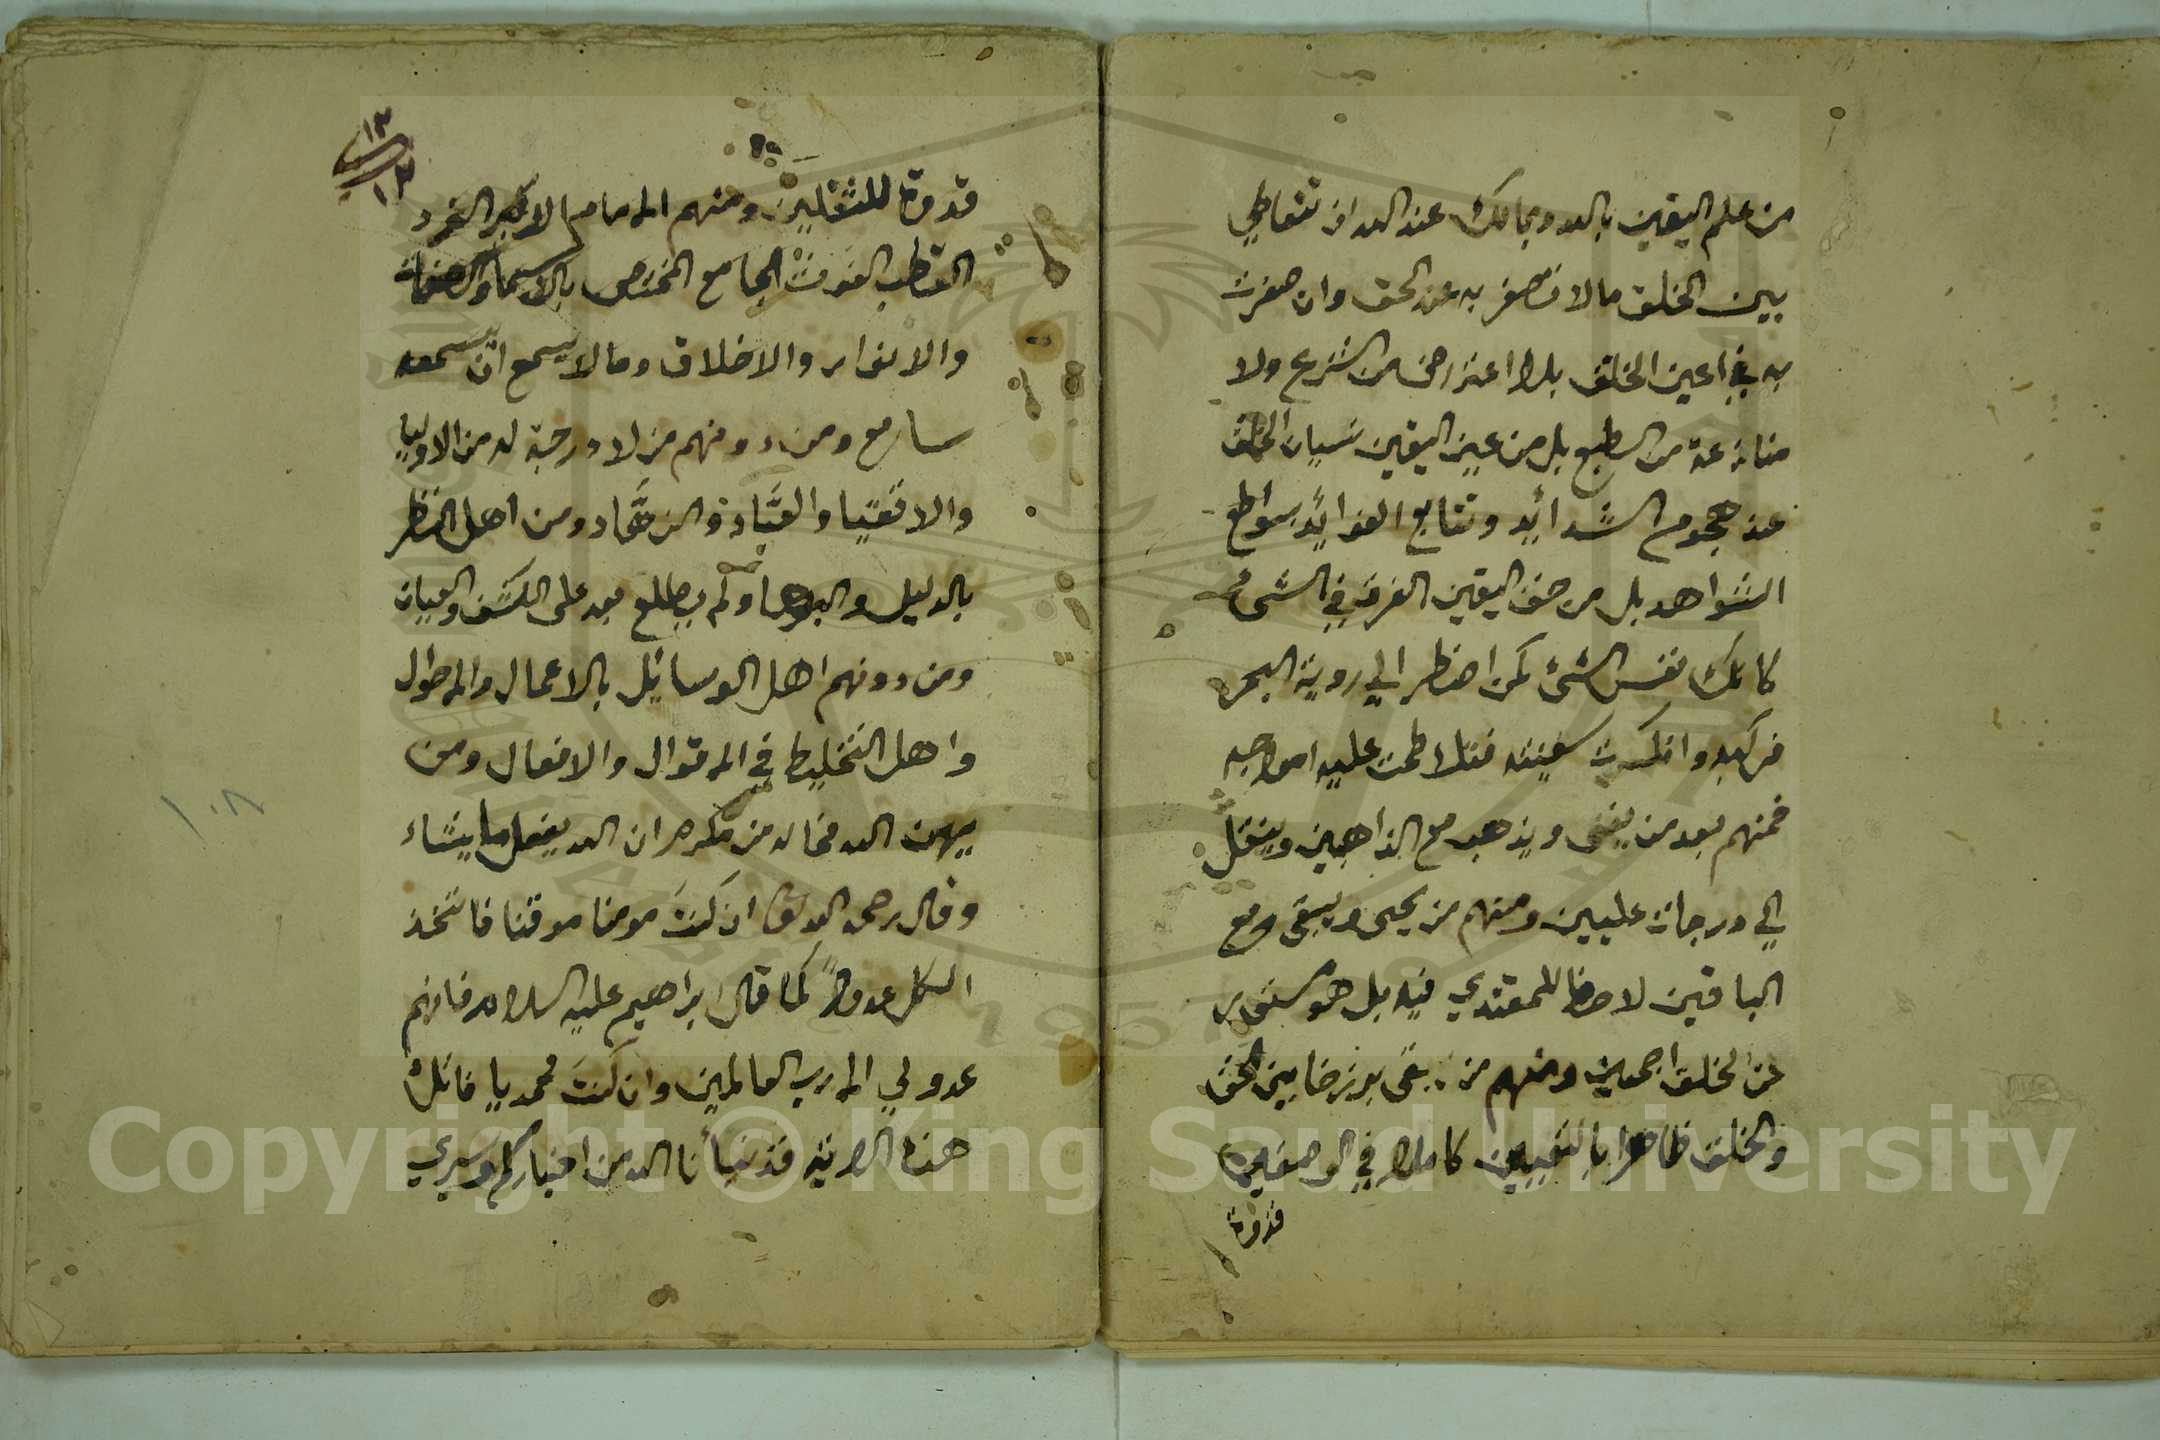 من علم اليقين بالله وبمالك عند الله ان تتعاطي
بين الخلق ما لا تصغر به عند الحق وان صغرت
به في اعين الخلق بلا اعتراض من الشرع ولا
منازعة من الطبع بل من عين اليقين نسيان الخلق
عند هجوم الشدائد وتتابع الفوائد بسواطع
الشواهد بل من حق اليقين الغرق في الشئ
كانك نفس الشئ كمن اضطر الي روية البحر
فركبه وانكسرت سفينته فتلاطمت عليه امواجه
فمنهم بعد من يفنى ويذهب مع الذاهبين وينقل
الي درجات عليين ومنهم من يحيى ويبقى مع
الباقين لا حظا للمقتدي فيه بل هو مستور
عن الخلق اجمعين ومنهم من يبقى برزخا بين الحق
والخلق ظاهرا بالنعتين كاملا في الوصفين
قدوة
١٣
١٣
قدوة للثقلين ومنهم الامام الاكبر الفرد
القطب الغوث الجامع المختص بالاسما والصفات
والانوار والاخلاق وما لا يسمع ان يسمعه
سامع ومن ومنهم من لا درجة له من الاوليا
والاتقيا والعباد والزهاد ومن اهل النظر
بالدليل والبرهان ولم يطلع بعد على الكشف والعيان
ومن دونهم اهل الوسائل بالاعمال والاحوال
واهل التخليط في الاقوال والافعال ومن
يهن الله فما له من مكرم ان الله يفعل ما يشاء
وقال رحمه الله ان كنت مومنا موقنا فاتخذ
الكل عدوا كما قال ابراهيم عليه السلام فانهم
عدو لي الا رب العالمين وان كنت محمديا فاتل
هذه الاية قد نبأنا الله من اخباركم وسيري
١٠٨
Copyright © King Saud University
1957